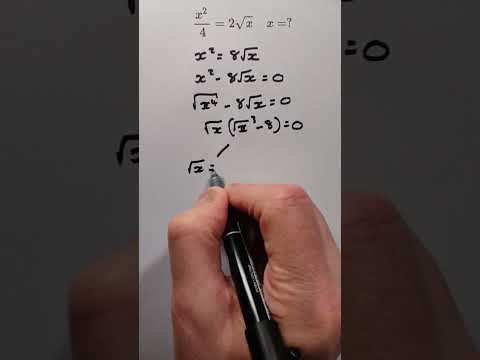 x²/4 = 2√x x=?
x² = 8√x
x² - 8√x = 0
√x⁴ - 8√x = 0
√x (√x³ - 8) = 0
√x =